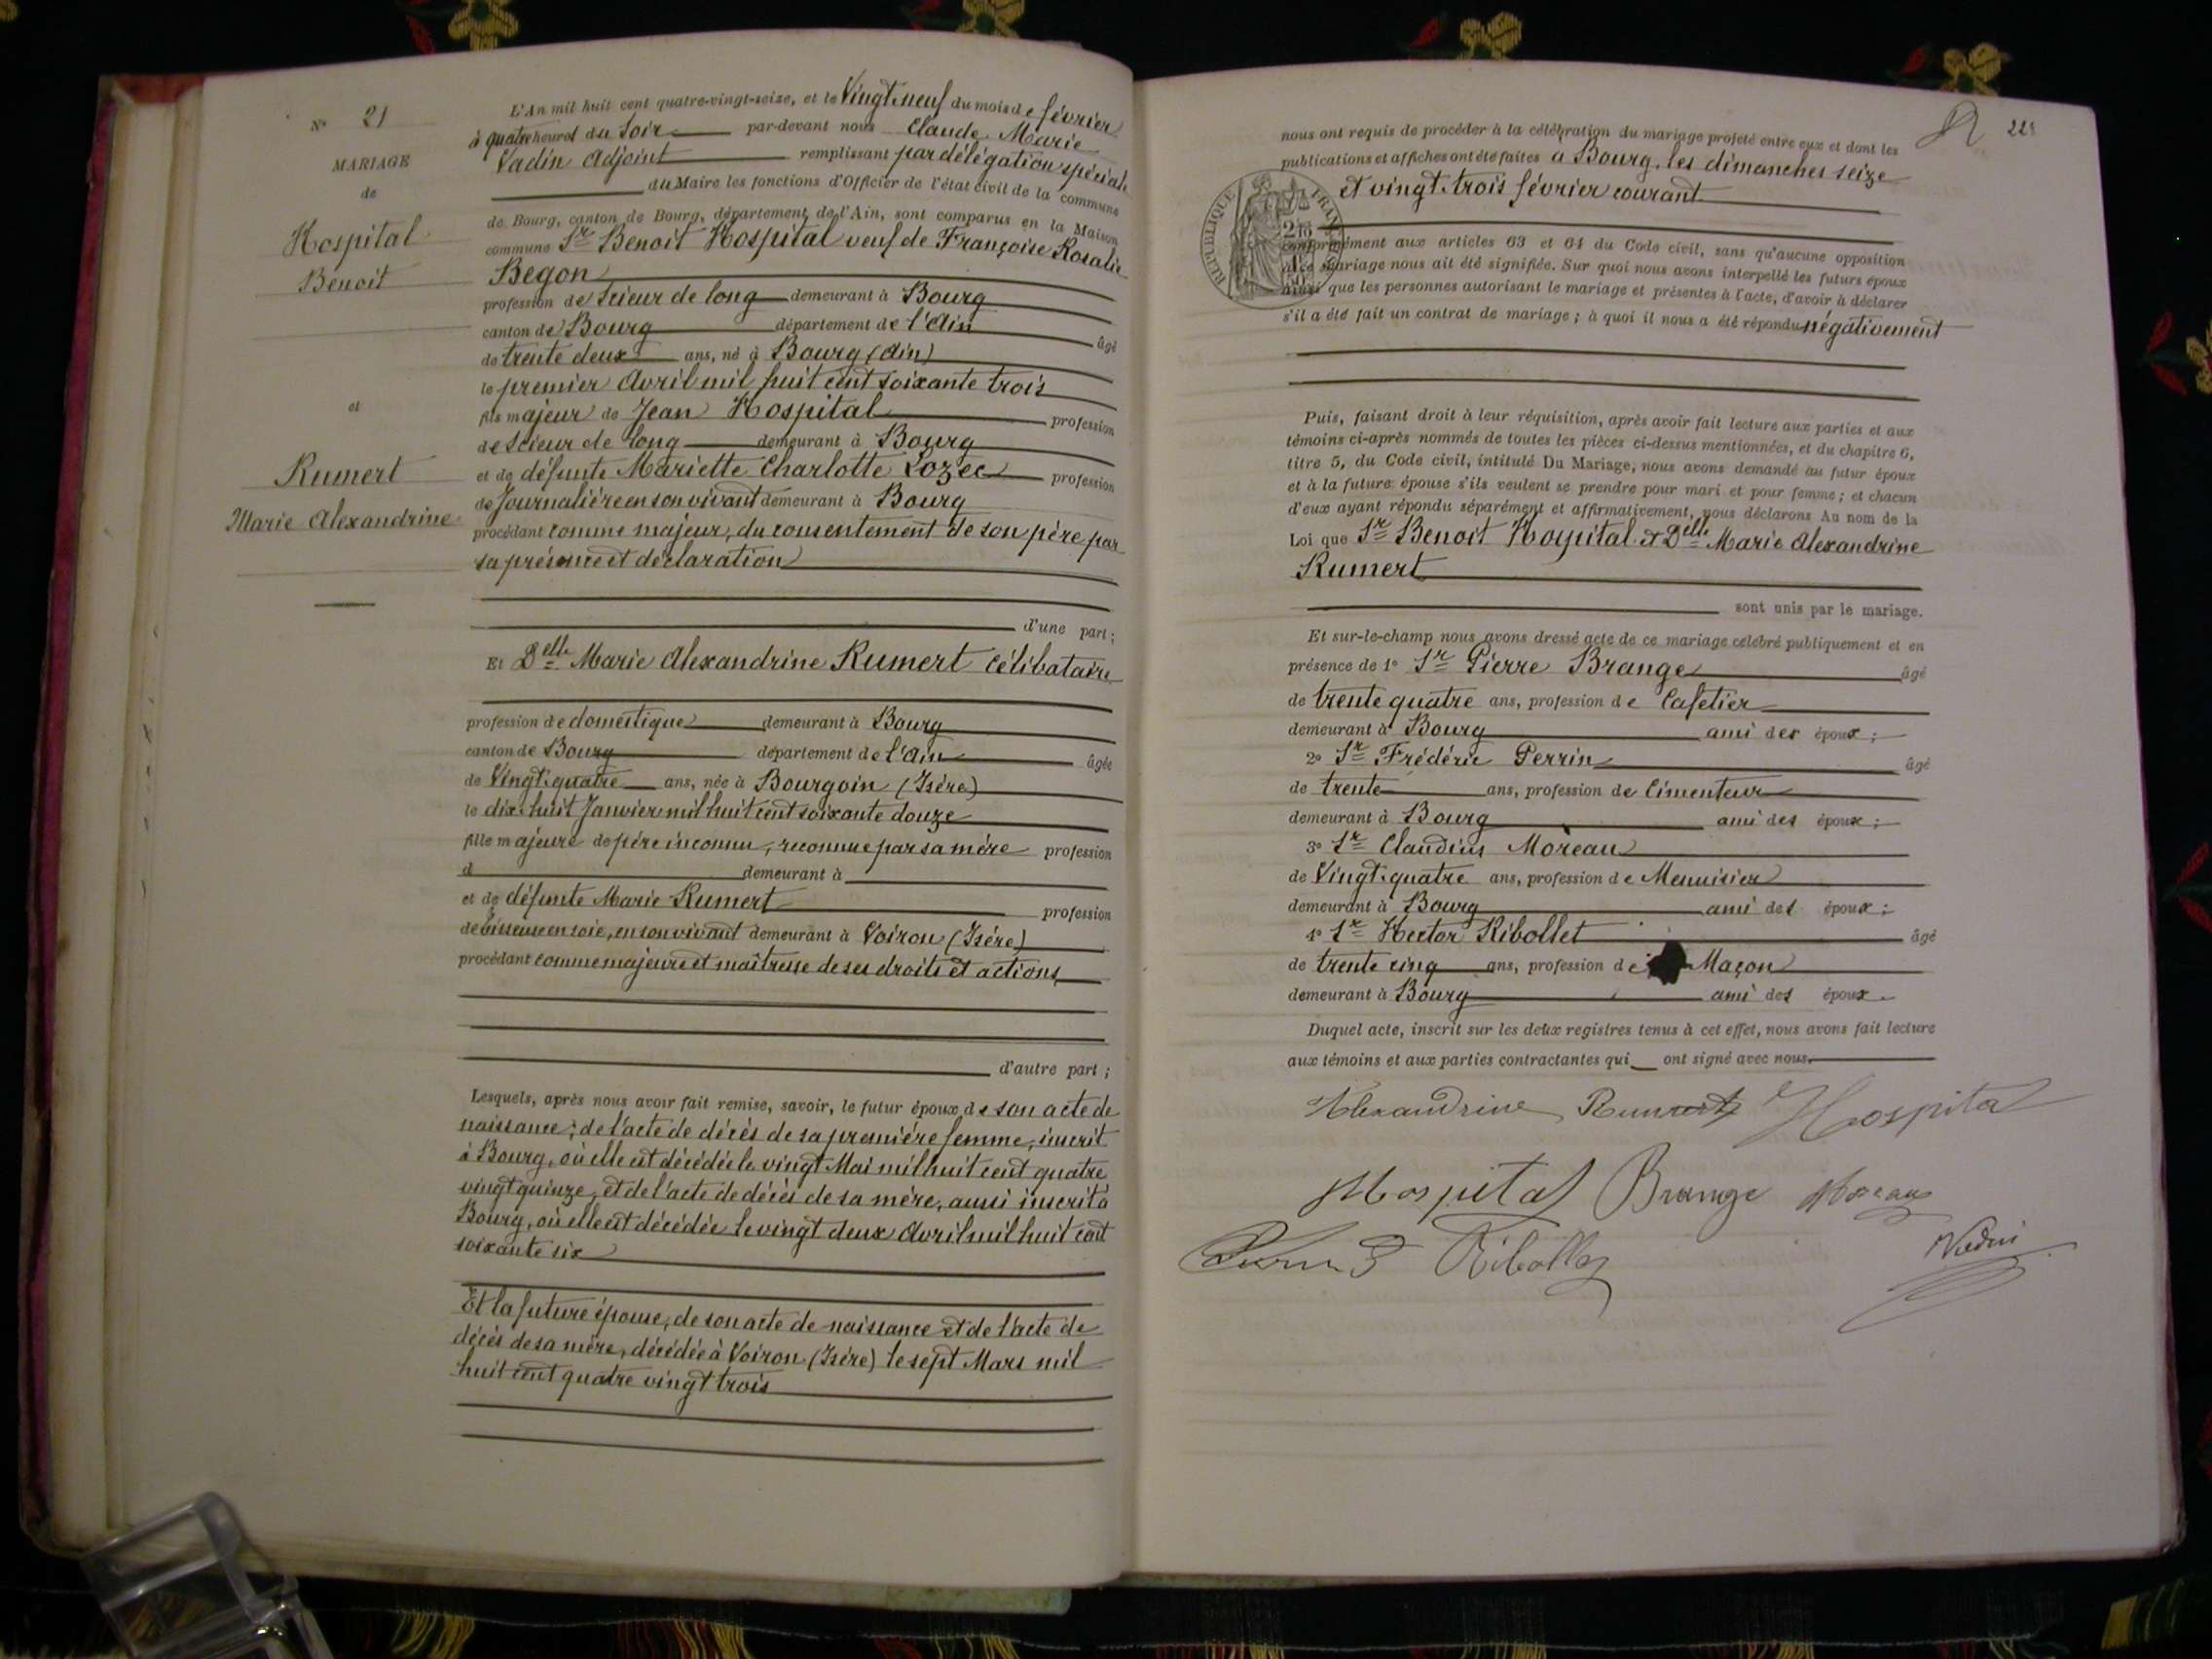 N° 21
MARIAGE
de
Hospital
Benoit
et
Rumert
Marie Alexandrine
L'An mil huit cent quatre-vingt-seize, et le Vingt-neuf du mois de février
à quatre heures du soir par-devant nous Claude Marie
Vadin Adjoint remplissant par délégation spéciale
du Maire les fonctions d'Officier de l'état civil de la commune
de Bourg, canton de Bourg, département de l'Ain, sont comparus en la Maison
commune Sr Benoit Hospital veuf de Françoise Rosalie
Begon
profession de scieur de long demeurant à Bourg
canton de Bourg département de l'Ain âgé
de trente deux ans, né à Bourg (Ain)
le premier Avril mil huit cent soixante trois
fils majeur de Jean Hospital profession
de scieur de long demeurant à Bourg
et de défunte Mariette Charlotte Lozec profession
de Journalière en son vivant demeurant à Bourg
procédant comme majeur, du consentement de son père par
sa présence et déclaration
d'une part;
Et Delle Marie Alexandrine Rumert célibataire
profession de domestique demeurant à Bourg
canton de Bourg département de l'Ain âgée
de Vingt-quatre ans, née à Bourgoin (Isère)
le dix-huit Janvier mil huit cent soixante douze
fille majeure de père inconnu, reconnue par sa mère profession
d demeurant à
et de défunte Marie Rumert profession
de tisseuse en soie, en son vivant demeurant à Voiron (Isère)
procédant comme majeure et maîtresse de ses droits et actions
d'autre part;
Lesquels, après nous avoir fait remise, savoir, le futur époux de son acte de
naissance; de l'acte de décès de sa première femme, inscrit
à Bourg, où elle est décédée le vingt Mai mil huit cent quatre
vingt quinze, et de l'acte de décès de sa mère, aussi inscrit à
Bourg, où elle est décédée le vingt deux Avril mil huit cent
soixante six
Et la future épouse, de son acte de naissance et de l'acte de
décès de sa mère, décédée à Voiron (Isère) le sept Mars mil
huit cent quatre vingt trois
22
nous ont requis de procéder à la célébration du mariage projeté entre eux et dont les
publications et affiches ont été faites à Bourg, les dimanches seize
et vingt-trois février courant
REPUBLIQUE FRAN
conformément aux articles 63 et 64 du Code civil, sans qu'aucune opposition
à ce mariage nous ait été signifiée. Sur quoi nous avons interpellé les futurs époux
ainsi que les personnes autorisant le mariage et présentes à l'acte, d'avoir à déclarer
s'il a été fait un contrat de mariage; à quoi il nous a été répondu négativement
Puis, faisant droit à leur réquisition, après avoir fait lecture aux parties et aux
témoins ci-après nommés de toutes les pièces ci-dessus mentionnées, et du chapitre 6,
titre 5, du Code civil, intitulé Du Mariage, nous avons demandé au futur époux
et à la future épouse s'ils veulent se prendre pour mari et pour femme; et chacun
d'eux ayant répondu séparément et affirmativement, nous déclarons Au nom de la
Loi que Sr Benoit Hospital et Delle Marie Alexandrine
Rumert
sont unis par le mariage.
Et sur-le-champ nous avons dressé acte de ce mariage célébré publiquement et en
présence de 1° Sr Pierre Brange âgé
de trente quatre ans, profession de Cafetier
demeurant à Bourg ami des époux;
2° Sr Frédéric Perrin âgé
de trente ans, profession de Cimenteur
demeurant à Bourg ami des époux;
3° Sr Claudius Moreau
de Vingt-quatre ans, profession de Menuisier
demeurant à Bourg ami des époux;
4° Sr Hector Ribollet âgé
de trente cinq ans, profession de Maçon
demeurant à Bourg ami des époux.
Duquel acte, inscrit sur les deux registres tenus à cet effet, nous avons fait lecture
aux témoins et aux parties contractantes qui ont signé avec nous.
Alexandrine Rumert Hospital
Hospital Brange Moreau
Ribollet Vadin